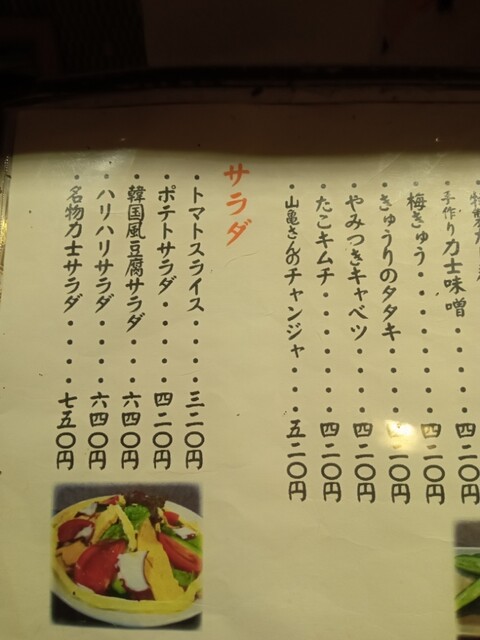 手作り力士味噌・・・・四二〇円
梅きゅう・・・・・四二〇円
きゅうりのタタキ・・・四二〇円
やみつきキャベツ・・・四二〇円
たこキムチ・・・・・四二〇円
山亀さんのチャンジャ・・・五二〇円
サラダ
・トマトスライス・・・・三二〇円
・ポテトサラダ・・・・四二〇円
・韓国風豆腐サラダ・・・六四〇円
・ハリハリサラダ・・・・六四〇円
・名物力士サラダ・・・・七五〇円